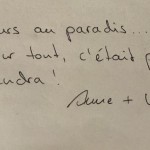 urs au paradis...
ur tout, c'était p
endra !
Anne + V